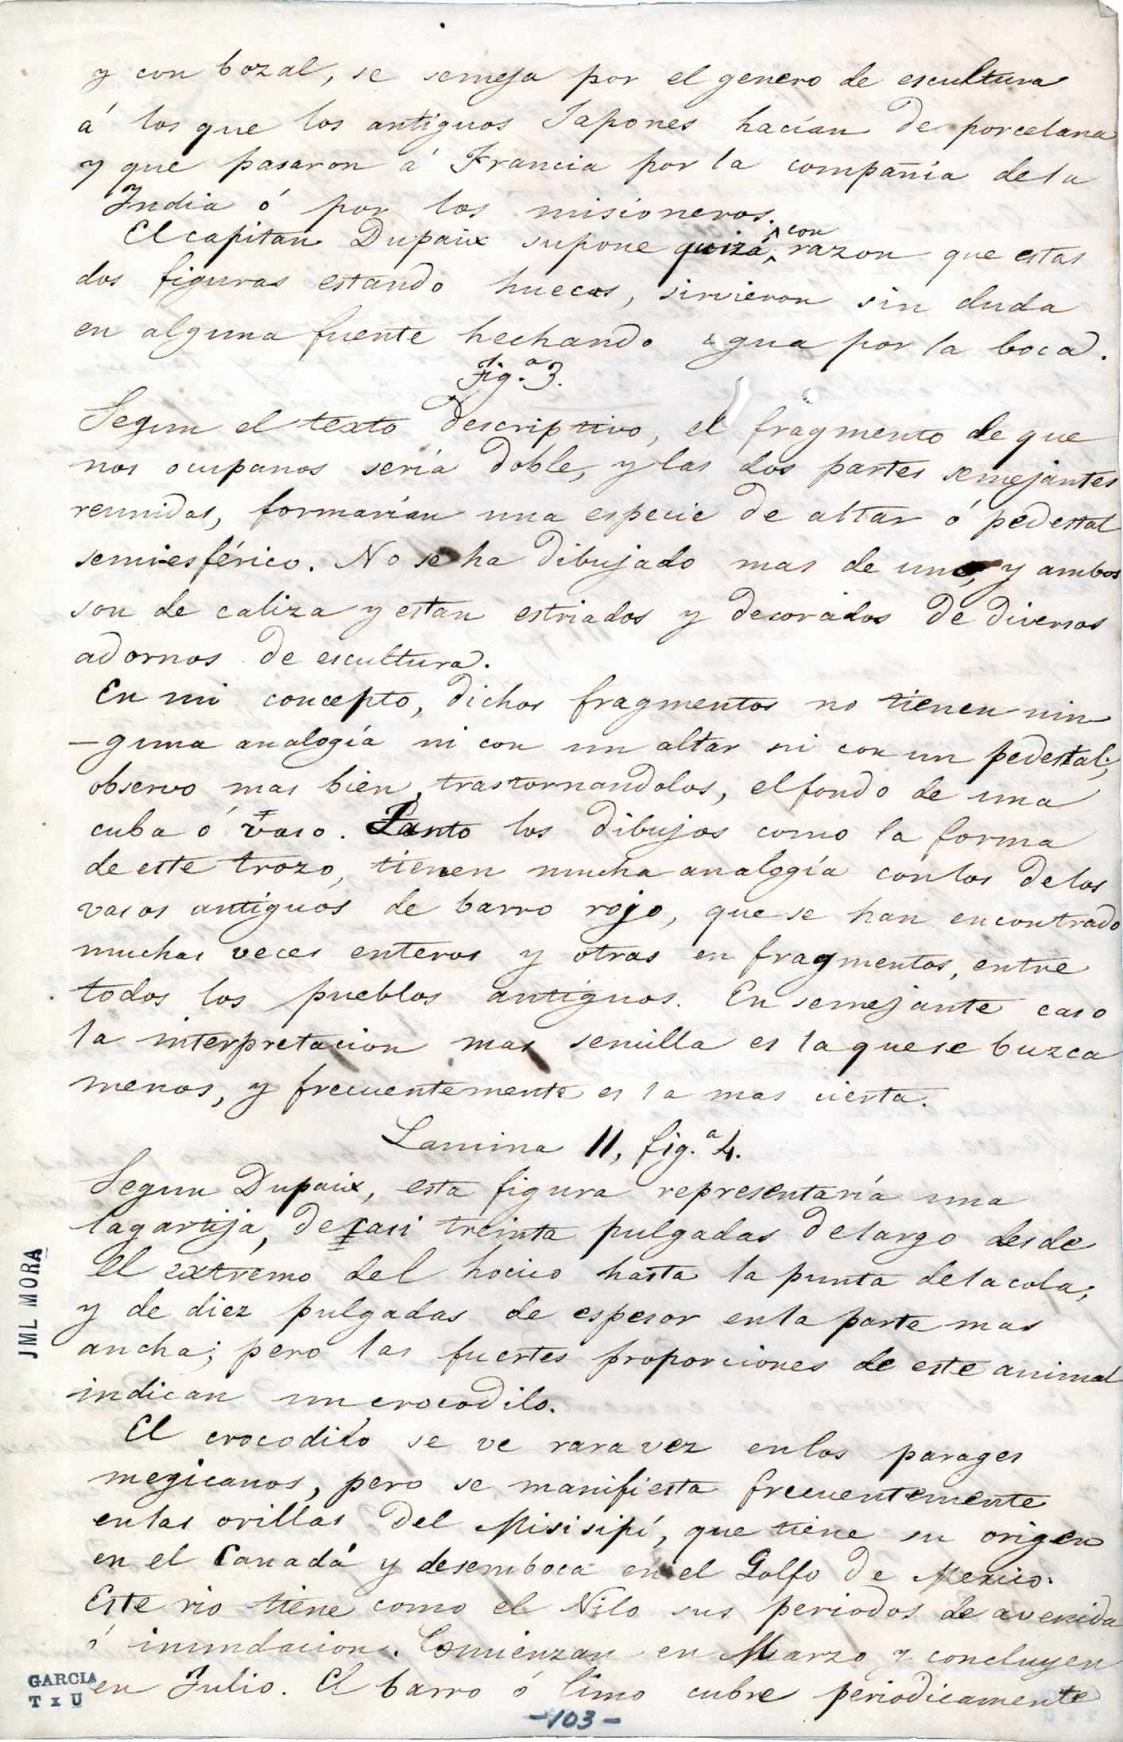 y con bozal, se semeja por el genero de escultura
á los que los antiguos Japones hacían de porcelana
y que pasaron á Francia por la compañia de la
India ó por los misioneros.
El capitan Dupaix supone quizá, con razon que estas
dos figuras estando huecas, sirvieron sin duda
en alguna fuente hechando agua por la boca.
Fig.ª 3.
Segun el texto descriptivo, el fragmento de que
nos ocupanos sería doble, y las dos partes semejantes
reunidas, formarían una especie de altar ó pedestal
semiesférico. No se ha dibujado mas de uno, y ambos
son de caliza y estan estriados y decorados de diversos
adornos de escultura.
En mi concepto, dichos fragmentos no tienen nin
-guna analogía ni con un altar ni con un pedestal;
observo mas bien, trastornandolos, el fondo de una
cuba ó vaso. Tanto los dibujos como la forma
de este trozo, tienen mucha analogía con los de los
vasos antiguos de barro rojo, que se han encontrado
muchas veces enteros y otras en fragmentos, entre
todos los pueblos antiguos. En semejante caso
la interpretacion mas sencilla es la que se buzca
menos, y frecuentemente es la mas cierta.
Lamina 11, fig.ª 4.
Segun Dupaix, esta figura representaría una
lagartija, de casi treinta pulgadas de largo desde
el extremo del hocico hasta la punta de la cola;
y de diez pulgadas de espesor en la parte mas
ancha; pero las fuertes proporciones de este animal
indican un crocodilo.
El crocodilo se ve rara vez en los parages
megicanos, pero se manifiesta frecuentemente
en las orillas del Misisipí, que tiene su origen
en el Canadá y desemboca en el Golfo de Mexico.
Este rio tiene como el Nilo sus periodos de avenida
ó inundacion. Comienzan en Marzo y concluyen
en Julio. El barro ó limo cubre periodicamente
-103-
JML MORA
GARCIA
T x U